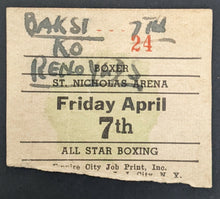 BAKSI 7TH
KO 24
RENO
BOXER
ST. NICHOLAS ARENA
Friday April
7th
ALL STAR BOXING
Empire City Job Print, Inc.
N. Y.